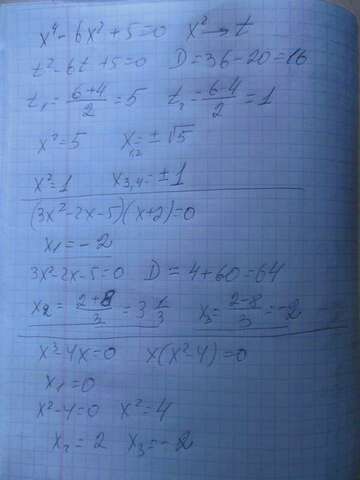 x⁴-6x²+5=0 x²→t
t²-6t+5=0 D=36-20=16
t₁=(6+4)/2=5 t₂=(6-4)/2=1
x²=5 x₁,₂=±√5
x²=1 x₃,₄=±1
(3x²-2x-5)(x+2)=0
x₁=-2
3x²-2x-5=0 D=4+60=64
x₂=(2+8)/3=3 1/3 x₃=(2-8)/3=-2
x³-4x=0 x(x²-4)=0
x₁=0
x²-4=0 x²=4
x₂=2 x₃=-2